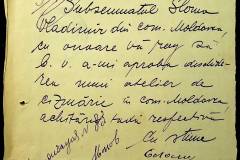 Subsemnatul Sloma
Vladimir din com. Moldova,
cu onoare vă rog să
b. v. a-mi aproba deschide-
rea unui atelier de
cizmărie în com. Moldova,
achitând taxa respectivă
Cu stimă